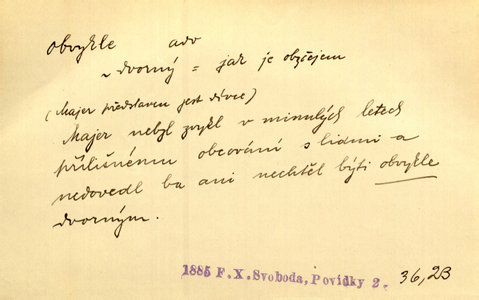 obvykle adv
~ dvorný = jak je obyčejem
(Majer představen jest dívce)
Majer nebyl zvykl v minulých letech
přílišnému obcování s lidmi a
nedovedl ba ani nechtěl býti obvykle
dvorným.
1885 F.X.Svoboda, Povídky 2. 36,2B